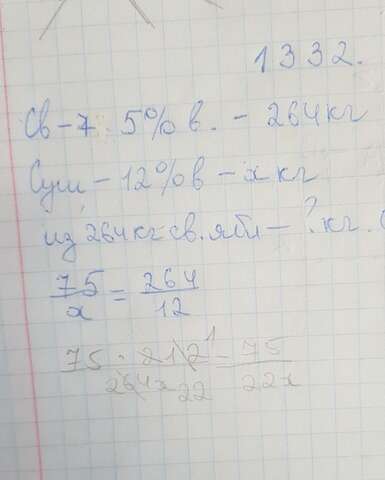 1332.
Св - 75% в. - 264 кг
Суш - 12% в - x кг
из 264 кг св. ябл - ? кг.
75/x = 264/12
75 · 12 1 = 75
264x 22 22x